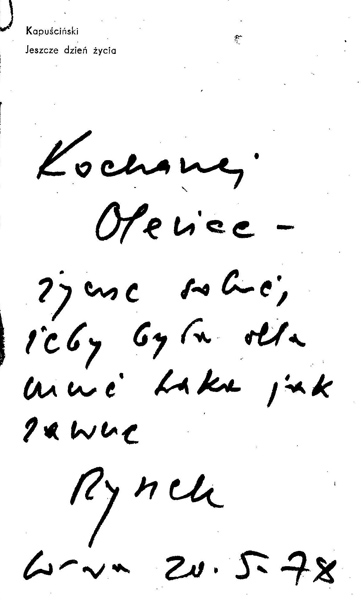 Kapuściński
Jeszcze dzień życia
Kochanej
Oleńce –
życzę sobie,
żeby była dla
mnie taka jak
zawsze
Rysiek
W-wa 20.5.78